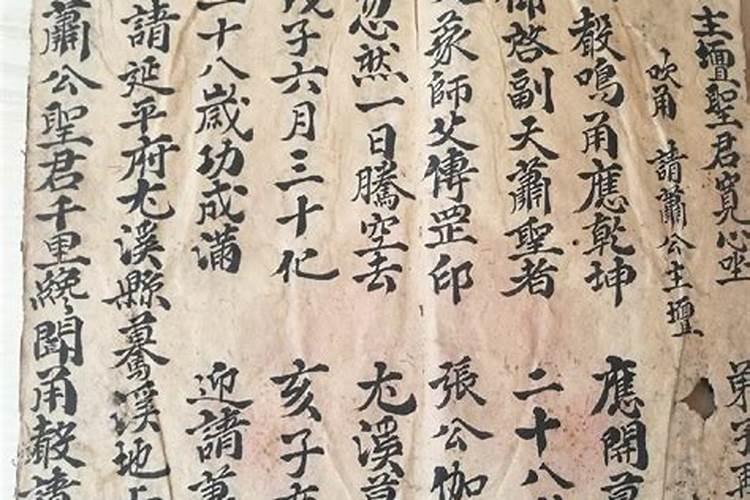 主壇聖君寬心坐
弟子
吹角 請蕭公主壇
聲鳴角應乾坤 應開
啓副天蕭聖者 二十八
蒙師父傳罡印 張公
忽然一日騰空去 尤溪
戊子六月三十化 亥子
二十八歲功成滿 迎請
請延平府尤溪縣蓦溪地
蕭公聖君千里終聞角聲請